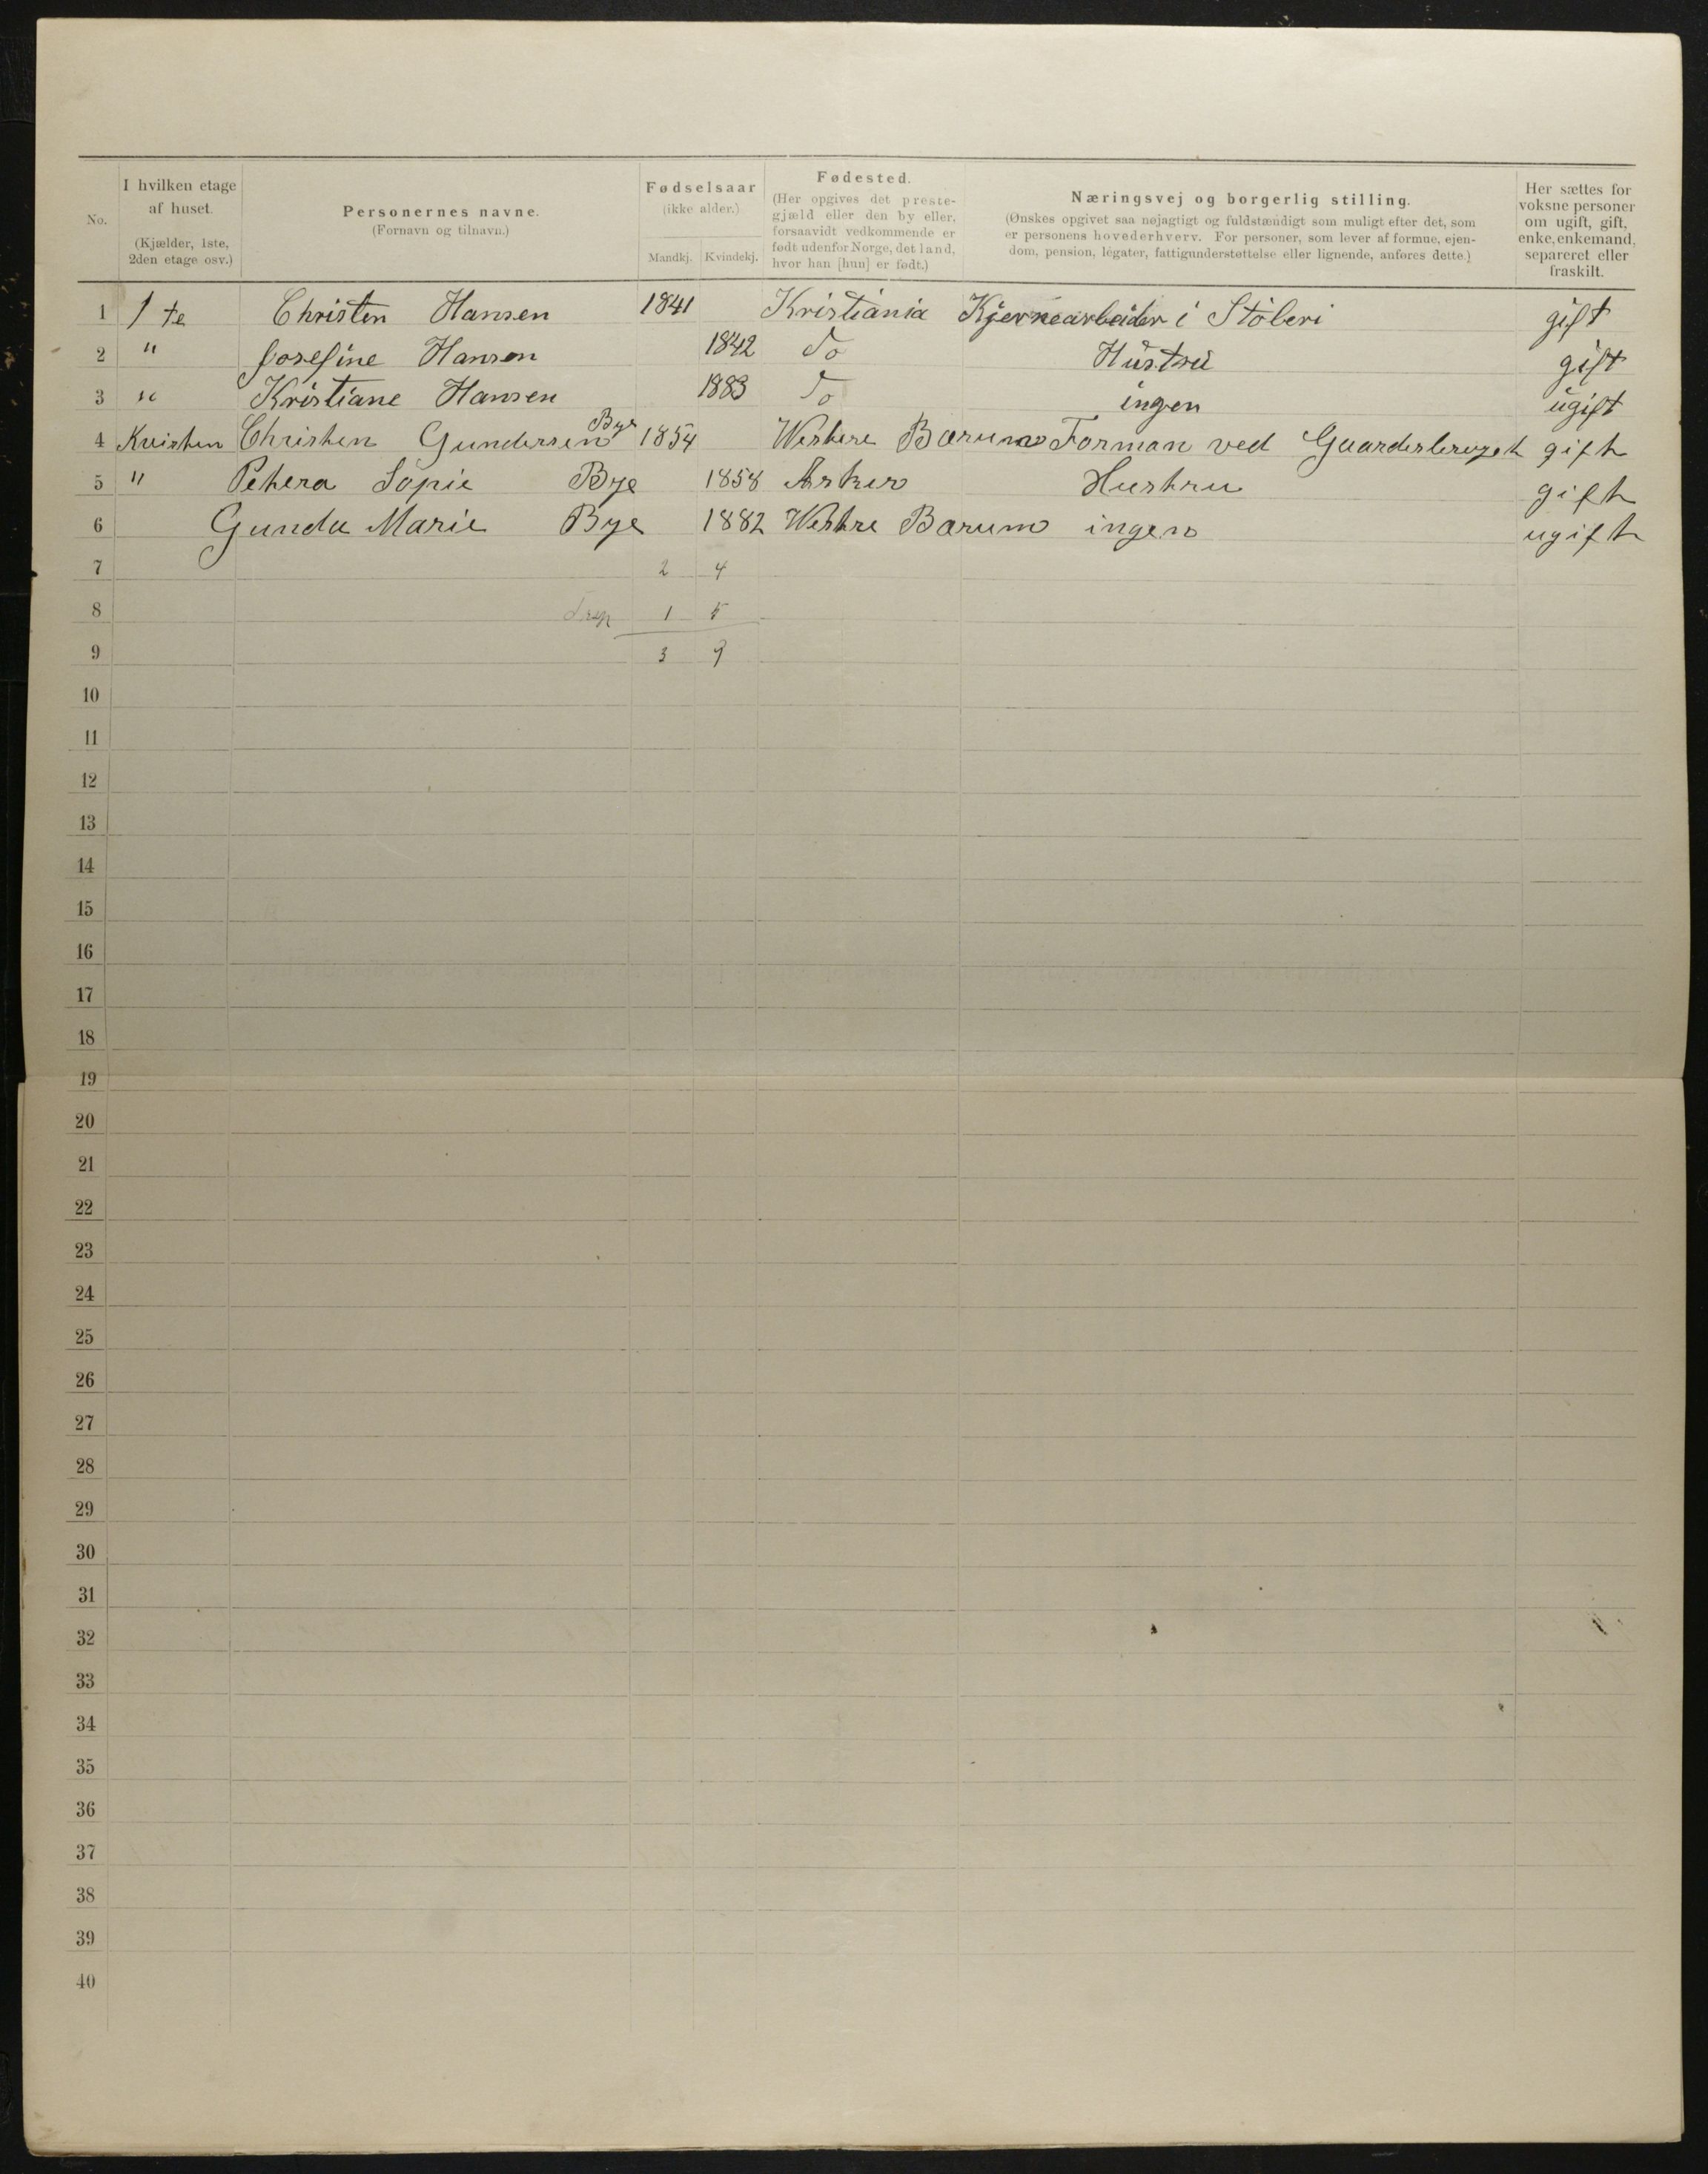 No.
I hvilken etage
af huset.
(Kjælder, 1ste,
2den etage osv.)
Personernes navne.
(Fornavn og tilnavn.)
Fødselsaar
(ikke alder.)
Mandkj. Kvindekj.
Fødested.
(Her opgives det preste-
gjæld eller den by eller,
forsaavidt vedkommende er
født udenfor Norge, det land,
hvor han [hun] er født.)
Næringsvej og borgerlig stilling.
(Ønskes opgivet saa nøjagtigt og fuldstændigt som muligt efter det, som
er personens hovederhverv. For personer, som lever af formue, ejen-
dom, pension, legater, fattigunderstøttelse eller lignende, anføres dette.)
Her sættes for
voksne personer
om ugift, gift,
enke, enkemand,
separeret eller
fraskilt.
1 1 te Christen Hansen 1841 Kristiania Kjernearbeider i Støberi gift
2 " Josefine Hansen 1842 Do Hustru gift
3 " Kristiane Hansen 1883 Do ingen ugift
4 Kvisten Christen Gundersen Bye 1854 Westere Bærum Forman ved gift
5 " Petera Sopie Bye 1858 Asker Hustru gift
6 Gunda Marie Bye 1882 Westre Bærum ingen ugift
7 2 4
8 1 5
9 3 9
10
11
12
13
14
15
16
17
18
19
20
21
22
23
24
25
26
27
28
29
30
31
32
33
34
35
36
37
38
39
40